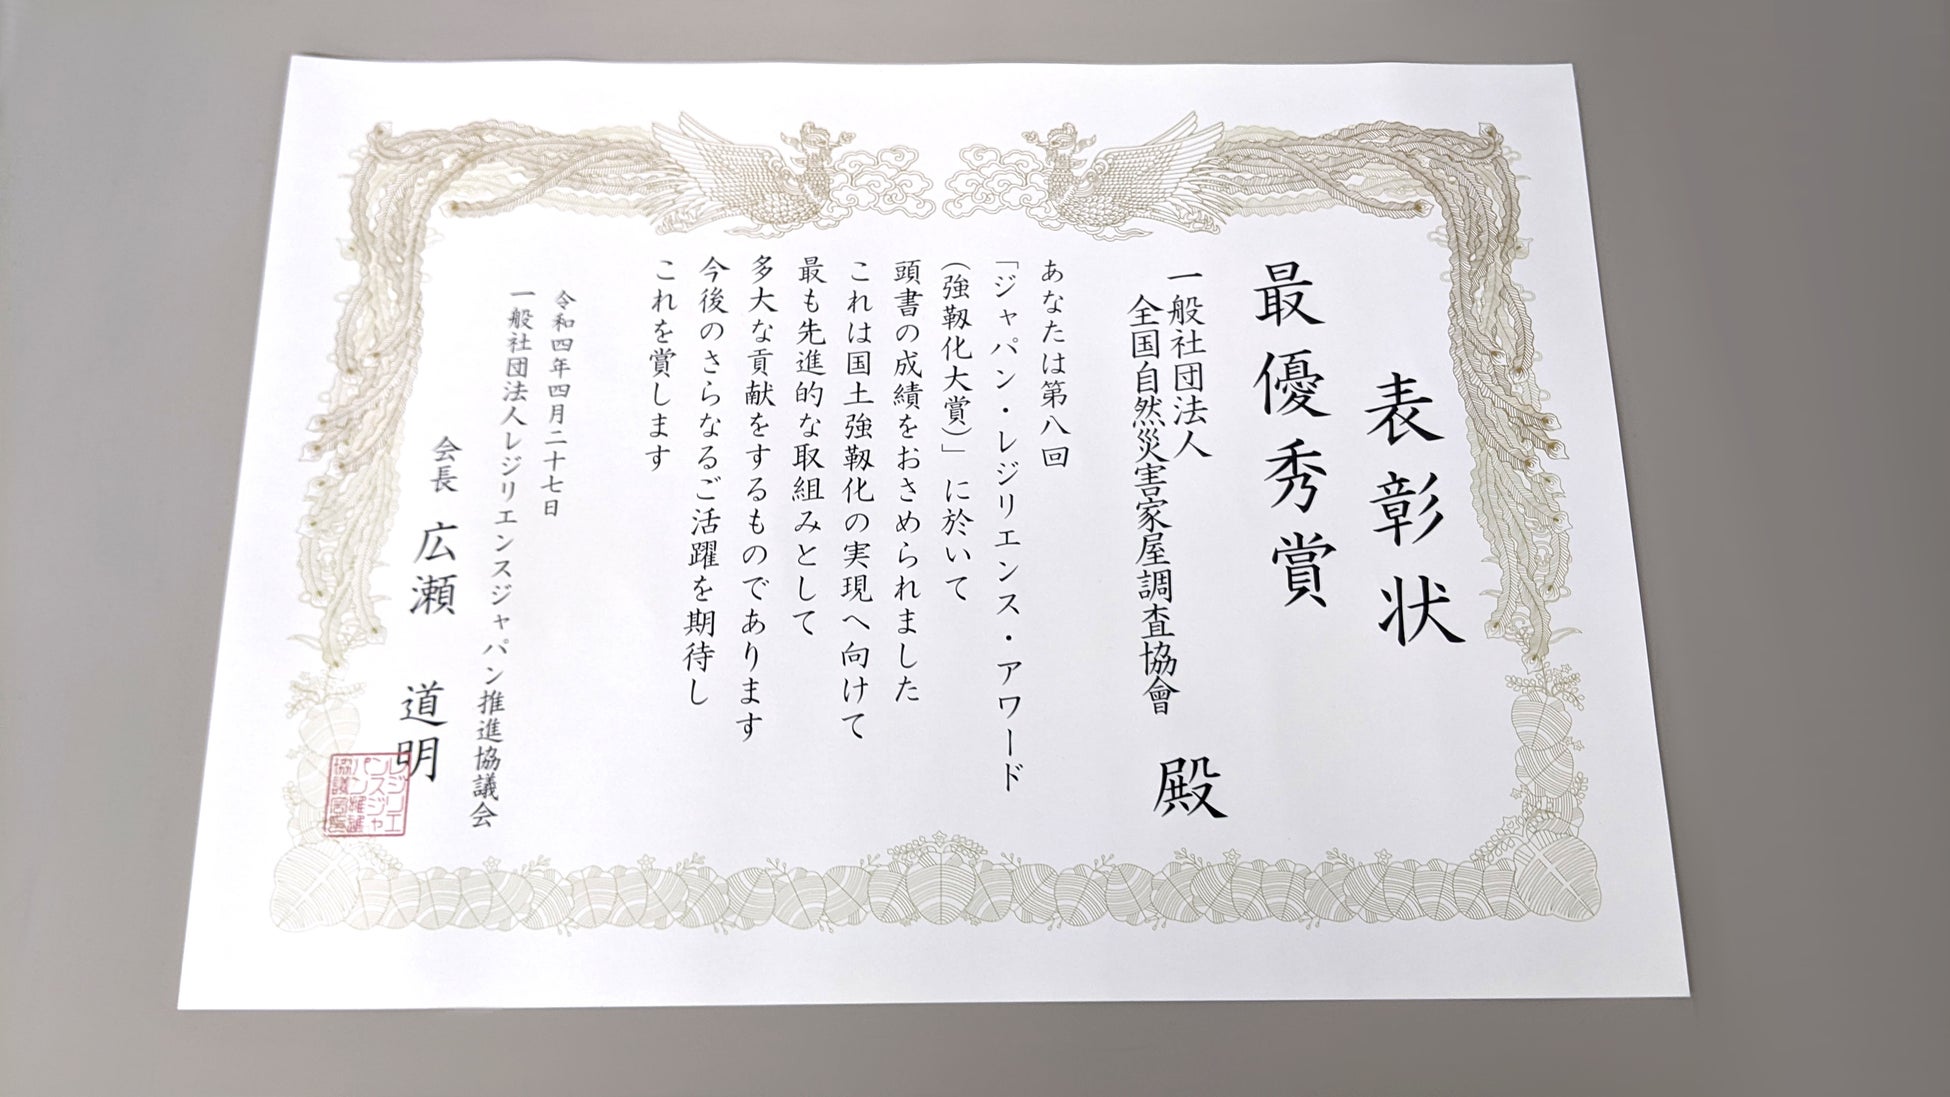 表彰状
最優秀賞
一般社団法人
全国自然災害家屋調査協會 殿
あなたは第八回
「ジャパン・レジリエンス・アワード
(強靱化大賞)」に於いて
頭書の成績をおさめられました
これは国土強靱化の実現へ向けて
最も先進的な取組みとして
多大な貢献をするものであります
今後のさらなるご活躍を期待し
これを賞します
令和四年四月二十七日
一般社団法人レジリエンスジャパン推進協議会
会長 広瀬 道明
レジリエ
ンスジャ
パン推進